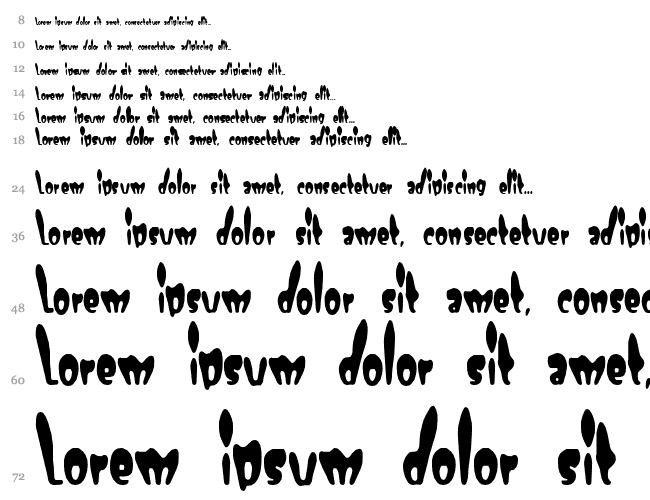 8 Lorem ipsum dolor sit amet, consectetuer adipiscing elit...
10 Lorem ipsum dolor sit amet, consectetuer adipiscing elit...
12 Lorem ipsum dolor sit amet, consectetuer adipiscing elit...
14 Lorem ipsum dolor sit amet, consectetuer adipiscing elit...
16 Lorem ipsum dolor sit amet, consectetuer adipiscing elit...
18 Lorem ipsum dolor sit amet, consectetuer adipiscing elit...
24 Lorem ipsum dolor sit amet, consectetuer adipiscing elit...
36 Lorem ipsum dolor sit amet, consectetuer adipis
48 Lorem ipsum dolor sit amet, consec
60 Lorem ipsum dolor sit amet,
72 Lorem ipsum dolor sit